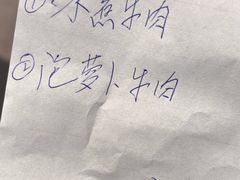 ①水煮牛肉
②泡萝卜牛肉